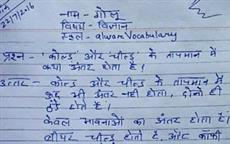 22/7/2016
नाम - गोलू
विषय - विज्ञान
स्कूल - alwareVocabulary
प्रश्न - कोल्ड और चील्ड के तापमान में
क्या अंतर होता है।
उत्तर - कोल्ड और चील्ड के तापमान में
कुछ भी अंतर नहीं होता, दोनों ही
ठंडे होते है।
केवल भावनाओं का अंतर होता है।
बीयर चील्ड होती है, और कॉफी